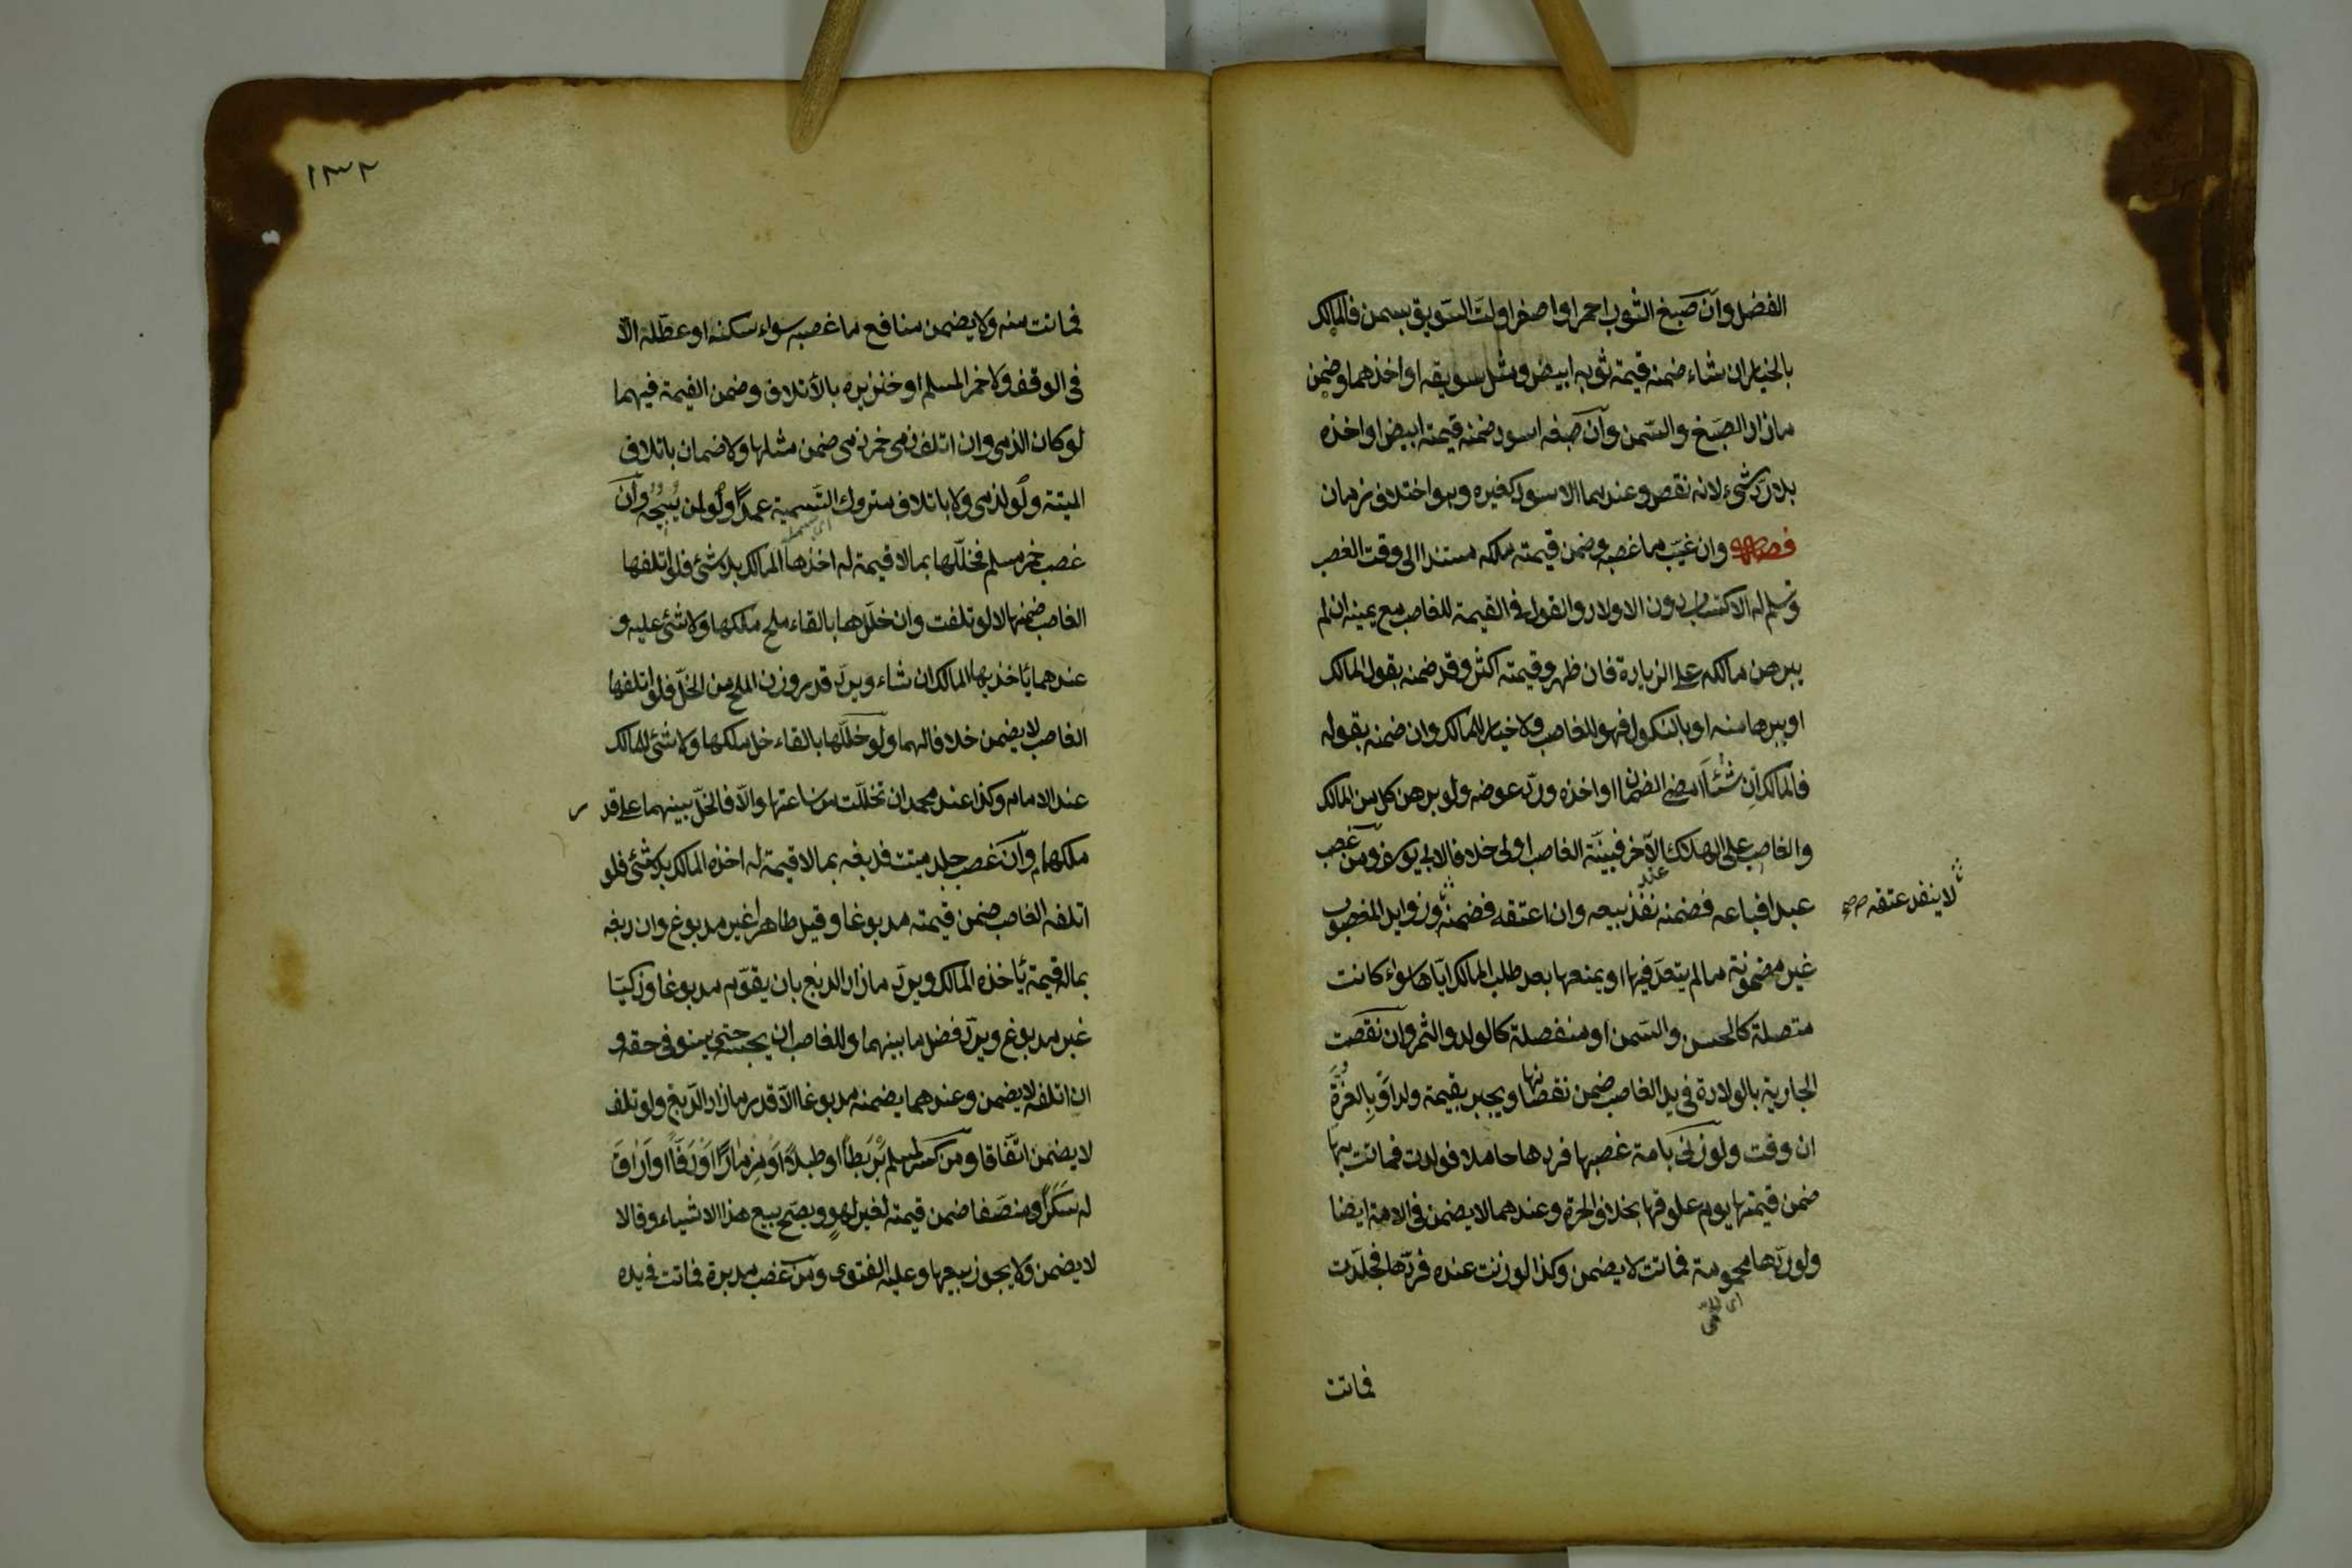 الفضل وان صبغ الثوب احمر او اصفر او لتّ السّويق بسمن فالمالك
بالخيار ان شاء ضمنه قيمة ثوبه ابيض ومثل سويقه او اخذهما وضمن
ما زاد الصبغ والسّمن وان صبغه اسود ضمنه قيمته ابيض او اخذه
بلا ردّ شئ لانه نقص وعندهما الاسود كغيره وهو اختلاف زمان
فصل وان غيّب ما غصبه وضمن قيمته ملكه مستندا الى وقت الغصب
وتسلم له الاكتساب دون الاولاد والقول في القيمة للغاصب مع يمينه ان لم
يبرهن مالكه على الزيادة فان ظهر وقيمته اكثر وقد ضمنه بقول المالك
او ببرهانه او بالنكول فهو للغاصب ولا خيار للمالك وان ضمنه بقوله
فالمالك ان شاء امضى الضمان او اخذه وردّ عوضه ولو برهن كل من المالك
والغاصب على الهلاك عند الآخر فبيّنة الغاصب اولى خلافا لابي يوسف ومن غصب
عبدا فباعه فضمنه نفذ بيعه وان اعتقه فضمنه وزوايد المغصوب
لا ينفذ عتقه صح
غير مضمونة ما لم يتعدّ فيها او يمنعها بعد طلب المالك ايّاها سواء كانت
متصلة كالحسن والسّمن او منفصلة كالولد والثمر وان نقصت
الجارية بالولادة في يد الغاصب ضمن نقصانها ويجبر بقيمة ولد او بالغرّة
ان وفت ولو زنى بامة غصبها فردها حاملا فولدت فماتت بها
ضمن قيمتها يوم علوقها بخلاف الحرة وعندهما لا يضمن في الامة ايضا
ولو ردّها محمومة فماتت لا يضمن وكذا لو زنت عنده فردّها فجلدت
فماتت
١٣٢
فماتت منه ولا يضمن منافع ما غصبه سواء سكنه او عطّله الّا
في الوقف ولا خمر المسلم او خنزيره بالاتلاف وضمن القيمة فيهما
لو كان الذمى وان اتلف ذمى خمر ذمى ضمن مثلها ولا ضمان باتلاف
الميتة ولو لذمى ولا باتلاف متروك التّسمية عمداً ولو لمن يُبيحُه وان
غصب خمر مسلم فخلّلها بما لا قيمة له اخذها المالك بلا شئ فلو اتلفها
الغاصب ضمنها لا لو تلفت وان خلّلها بالقاء ملح ملكها ولا شئ عليه و
عندهما يأخذ بها المالك ان شاء ويردّ قدر وزن الملح من الخلّ فلو اتلفها
الغاصب لا يضمن خلافا لهما ولو خلّلها بالقاء خل ملكها ولا شئ للمالك
عند الامام وكذا عند محمد ان تخلّلت من ساعتها والّا فالخلّ بينهما على قدر
ملكهما وان غصب جلد ميتة فدبغه بما لا قيمة له اخذه المالك بلا شئ فلو
اتلفه الغاصب ضمن قيمته مدبوغا وقيل طاهرا غير مدبوغ وان دبغه
بماله قيمة يأخذه المالك ويردّ ما زاد الدبغ بان يقوّم مدبوغا وذكيّا
غير مدبوغ ويردّ فضل ما بينهما وللغاصب ان يحبسه حتى يستوفى حقه و
ان اتلفه لا يضمن وعندهما يضمنه مدبوغا الّا قدر ما زاد الدّبغ ولو تلف
لا يضمن اتّفاقا ومن كسر لمسلم بَرْبَطاً او طبلاً او مِزماراً او دَفّاً او اراق
له سَكَراً ومنصّفا ضمن قيمته لغير لهوٍ ويصحّ بيع هذا الاشياء وقالا
لا يضمن ولا يجوز بيعها وعليه الفتوى ومن غصب مدبرة فماتت في يده